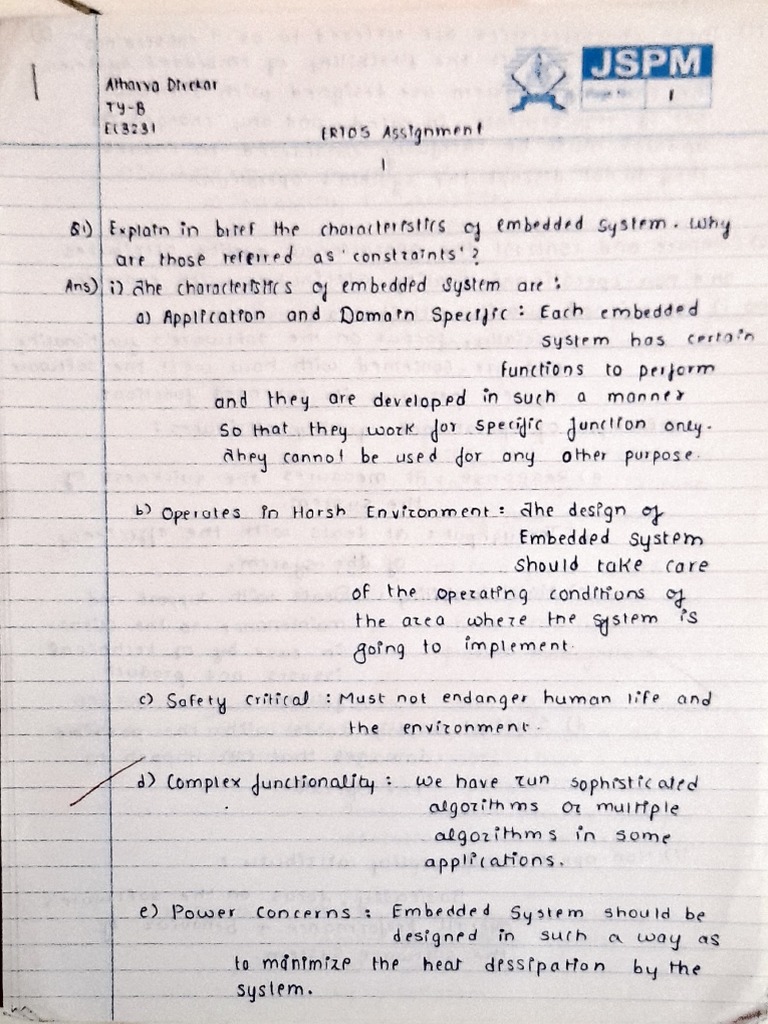 JSPM
1
Atharva Divekar
TY-B
EC3231
ERTOS Assignment
1
Q1) Explain in brief the characteristics of embedded system. Why
are those referred as 'constraints'?
Ans) i) The characteristics of embedded system are :
a) Application and Domain Specific : Each embedded
system has certain
functions to perform
and they are developed in such a manner
so that they work for specific function only.
They cannot be used for any other purpose.
b) Operates in Harsh Environment : The design of
Embedded system
should take care
of the operating conditions of
the area where the system is
going to implement.
c) Safety critical : Must not endanger human life and
the environment.
d) Complex functionality : we have run sophisticated
algorithms or multiple
algorithms in some
applications.
e) Power Concerns : Embedded System should be
designed in such a way as
to minimize the heat dessipation by the
system.